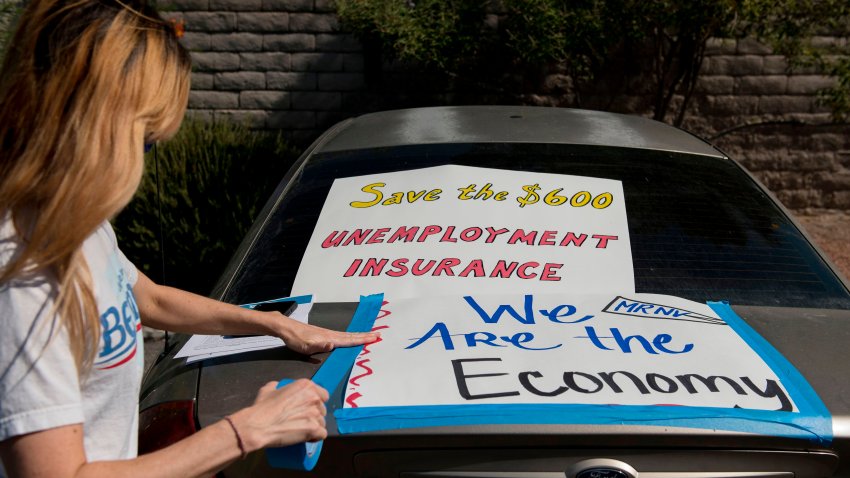 Save the $600
UNEMPLOYMENT
INSURANCE
MRNV
We
Are the
Economy
Be
Ford